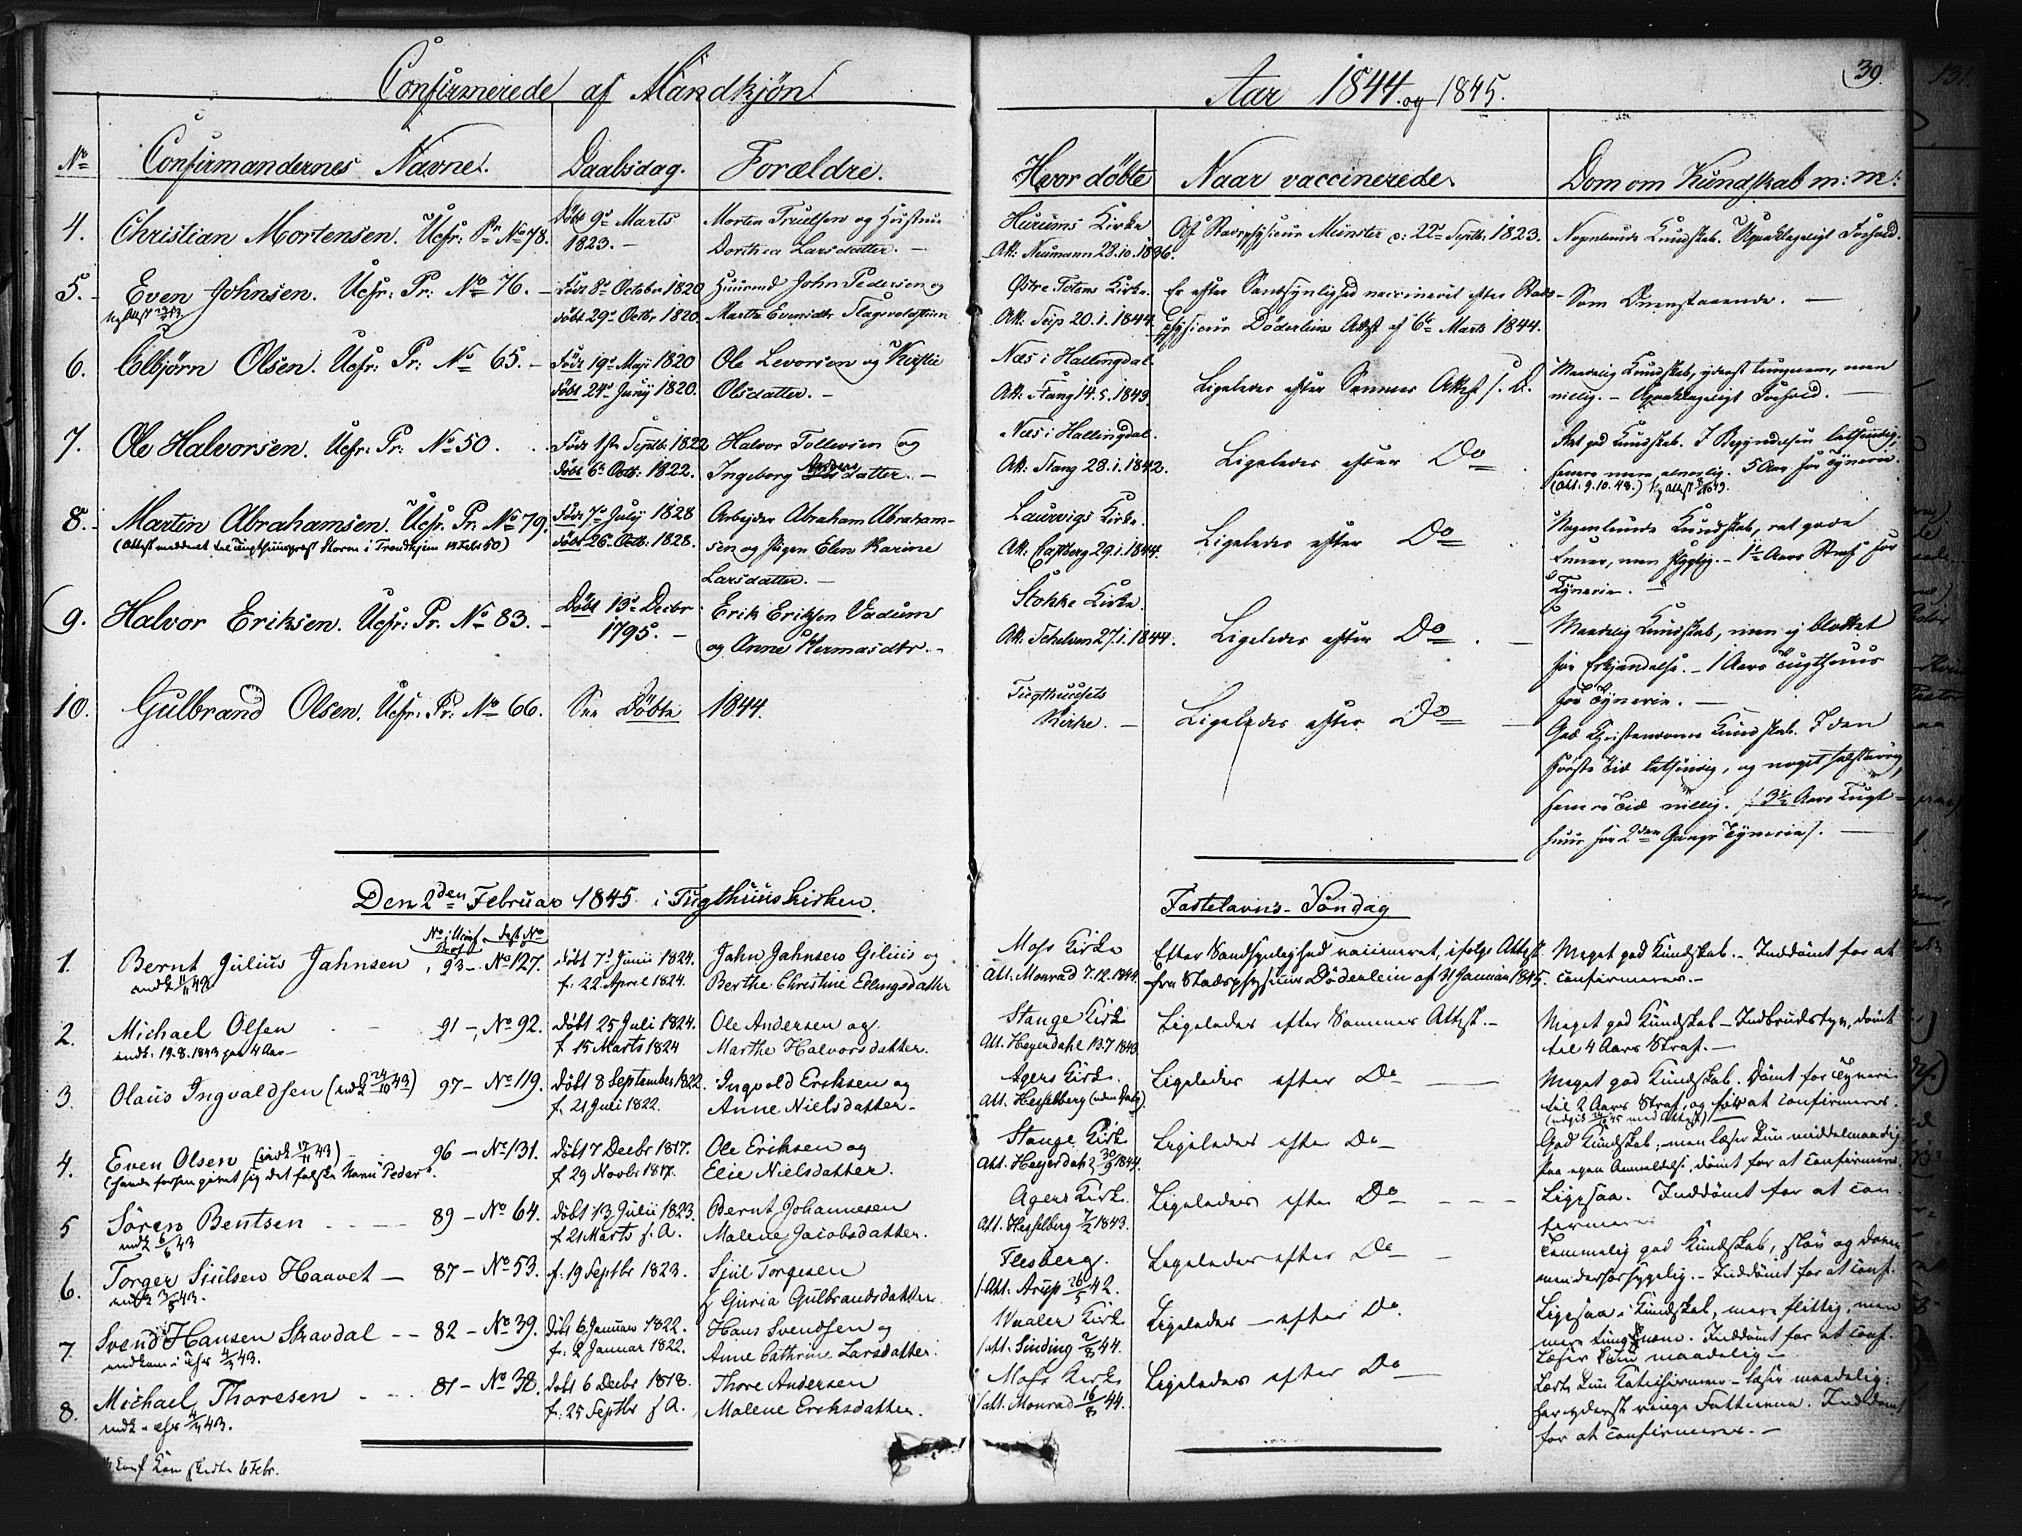 Confirmerede af Mandkjøn.
Aar 1844. og 1845.
39.
131.
No
Confirmandernes Navne.
Daabsdag.
Forældre.
Hvor döbte
Naar vaccinerede.
Dom om Kundskab m: m:
4.
Christian Mortensen. Ucfr: Pr No 78.
Döbt 9de Marts
1823. –
Morten Truelsen og Hustru
Dorthea Larsdatter. –
Hurums Kirke.
Att: Neumann 28.10.1836.
Af Stadsphysicus Münster d: 22de Septbr. 1823.
Nogenlunde Kundskab. Upaaklageligt Forhold.
5. –
Even Johnsen. Ucfr: Pr: No 76. –
Födt 8de October 1820
döbt 29de Octbr 1820.
Huusmd John Pedersen og
Marthe Evensdtr
Östre Totens Kirke.
Att: 20.1.1844.
Er efter Sandsynlighed vaccineret efter Stads-
physicus Döderleins Attest af 6te Marts 1844.
Som Ovenstaaende. –
6.
Olsen. Ucfr: Pr: No 65. –
Födt 19de Maji 1820
döbt 24de Junij 1820.
Ole Levorsen og Kirstie
Olsdatter. –
Næs i Hallingdal.
Att: Stang 14.5.1843.
Ligeledes efter Samme Attest
Maadelig Kundskab, yderst tungnem, men
villig. – Upaaklageligt Forhold. –
7.
Ole Halvorsen. Ucfr: Pr: No 50.
Födt 1ste Septb. 1822
döbt 6te Octb: 1822.
Halvor Tollevsen og
Ingeborg datter. –
Næs i Hallingdal.
Att: Stang 28.1.1842.
Ligeledes efter Do
Ret god Kundskab. I Begyndelsen letsindig,
senere mere alvorlig. 5 Aar for Tyverie.
(Att. 9.10.48.)
8. –
Martin Abrahamsen. Ucfr: Pr: No 79.
(Attest meddeelt til Tugthuuspræst Storm i Trondhjem 14 Feb 50)
Födt 7de Julij 1828
döbt 26. Octb. 1828.
Arbejder Abraham Abraham-
sen og Pigen Elen Karine
Larsdatter. –
Laurvigs Kirke.
Att: 29.1.1844.
Ligeledes efter Do
Nogenlunde Kundskab, ret gode
Evner, men flygtig. – 1½ Aars Straf for
Tyverie. –
9.
Halvor Eriksen. Ucfr: Pr. No 83. –
Döbt 13de Decbr
1795. –
Erik Eriksen Vadum
og Anne Hermansdtr. –
Stokke Kirke.
Att: 27.1.1844.
Ligeledes efter Do
Maadelig Kundskab, men ej blottet
for Erkjendelse. – 1 Aars Tugthuus
for Tyverie. –
10.
Gulbrand Olsen. Ucfr: Pr: No 66.
See Döbte
1844.
Tugthuusets
Kirke. –
Ligeledes efter Do
God Christendoms Kundskab. I den
förste Tid letsindig, og noget
senere Tid villig. (3½ Aars Tugt-
huus for 2den Gangs Tyverie). –
Den 2den Februar 1845 i Tugthuuskirken.
Fastelavns-Söndag
1.
Bernt Julius Jahnsen
93 – No 127.
döbt 7de Junii 1824.
f. 22 April 1824.
Jahn Jahnsen Gilius og
Berthe Christine Ellingsdatter
Moss Kirke
Att: Monrad 7.12.1844.
Efter Sandsynlighed vaccineret, ifølge Attest
fra Stadsphysicus Döderlein af 31 Januar 1845.
Meget god Kundskab. – Inddömt for at
confirmeres. –
2.
Michael Olsen
indk: 19.8.1843 paa 4 Aar –
91 – No 92.
döbt 25 Juli 1824.
f 15 Marts 1824
Ole Andersen og
Marthe Halvorsdatter.
Stange Kirke
Att. Heyerdahl 13.7 1843
Ligeledes efter Sammes Attest. –
Meget god Kundskab – Indbrudstyv, dömt
til 4 Aars Straf. –
3.
Olaus Ingvaldsen (indk 24/10 43)
97 – No 119.
döbt 8 September 1822.
f. 21 Juli 1822.
Ingvold Eriksen og
Anne Nielsdatter –
Agers Kirke.
Att. Hesselberg (uden Dato).
Ligeledes efter Do
Meget god Kundskab. Dömt for Tyverie
til 2 Aars Straf, og for at confirmeres.
4.
Even Olsen (indk 17/11 43)
96 – No 131.
döbt 7 Decbr 1817.
f 29 Novbr 1817.
Ole Eriksen og
Elie Nielsdatter.
Stange Kirke
Att. Heyerdahl 30/9 1844
Ligeledes efter Do
God Kundskab, men læser kun middelmaadig
paa egen Anmeldelse, dömt for at confirmeres.
(havde forhen givet sig det falske Navn Peder)
5
Sören Bentsen
indk 6/6 43
89 – No 64.
döbt 13 Julii 1823.
f. 21 Marts s. A.
Bernt Johannesen
Malene Jacobsdatter.
Agers Kirke.
Att. Hesselberg 7/2 1843.
Ligeledes efter Do
Ligesaa. Inddömt for at con-
firmeres
6.
Torger Siulsen Haavet –
indk 3/5 43.
87 – No 53.
f. 19 Septbr 1823.
Sjul Torgesen
Guria Gulbrandsdatter.
Flesberg.
Att. Arup 26/5 42.
Ligeledes efter Do
Temmelig god Kundskab, slöv og doven
men dog forhyggelig. – Inddömt for at conf.
7.
Svend Hansen Skavdal –
indkom i 4/4 43.
82 – No 39.
döbt 6 Januar 1822.
f. 2 Januar 1822.
Hans Svendsen og
Anne Cathrine Larsdatter.
Waaler Kirke
Att. Sinding 2/8 44.
Ligeledes – efter Do.
Ligesaa i Kundskab, mere flittig, men
mere tungnem. Inddömt for at conf.
Læser kun maadelig –
8.
Michael Thoresen
81 – No 38.
döbt 6 Decbr 1818.
f. 25 Septbr s A.
Thore Andersen
Malene Eriksdatter.
Moss Kirke
Att. Monrad 16/8 44.
Ligeledes efter Do
Lært kun Katechismen – læser maadelig;
har yderst ringe Fatteevne. Inddömt
for at confirmeres. –